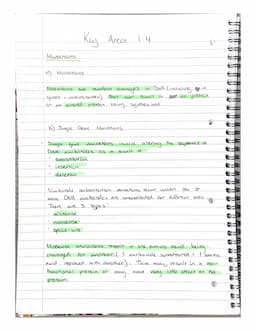 Key Area 1.4
Mutations
a) Mutations
Mutations are random changes in DNA (including in
genes + chromosomes) that can result in no protein
or an altered protein being synthesised.
b) Single Gene Mutations
Single gene mutations involve altering the sequence of
DNA nucleotides as a result of:
- substitution
- insertion
- deletion
Nucleotide substitution mutations occur when one or
more DNA nucleotides are substituted for different ones.
There are 3 types:
- missense
- nonsense
- splice-site
Missense mutations result in one amino acid being
changed for another (1 nucleotide substituted = 1 amino
acid replaced with another). This may result in a non-
functional protein or may have very little effect on the
protein.